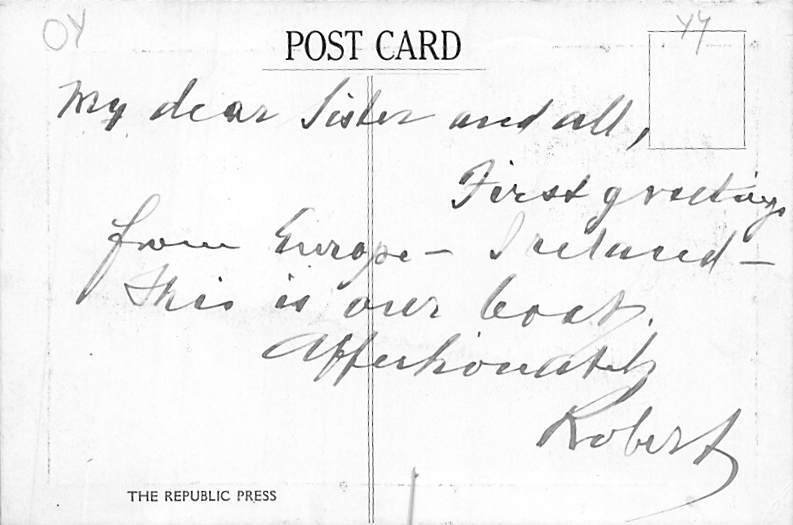 OY
YY
POST CARD
My dear Sister and all,
First greetings
from Europe — Ireland —
This is our boat.
Affectionately
Robert
THE REPUBLIC PRESS